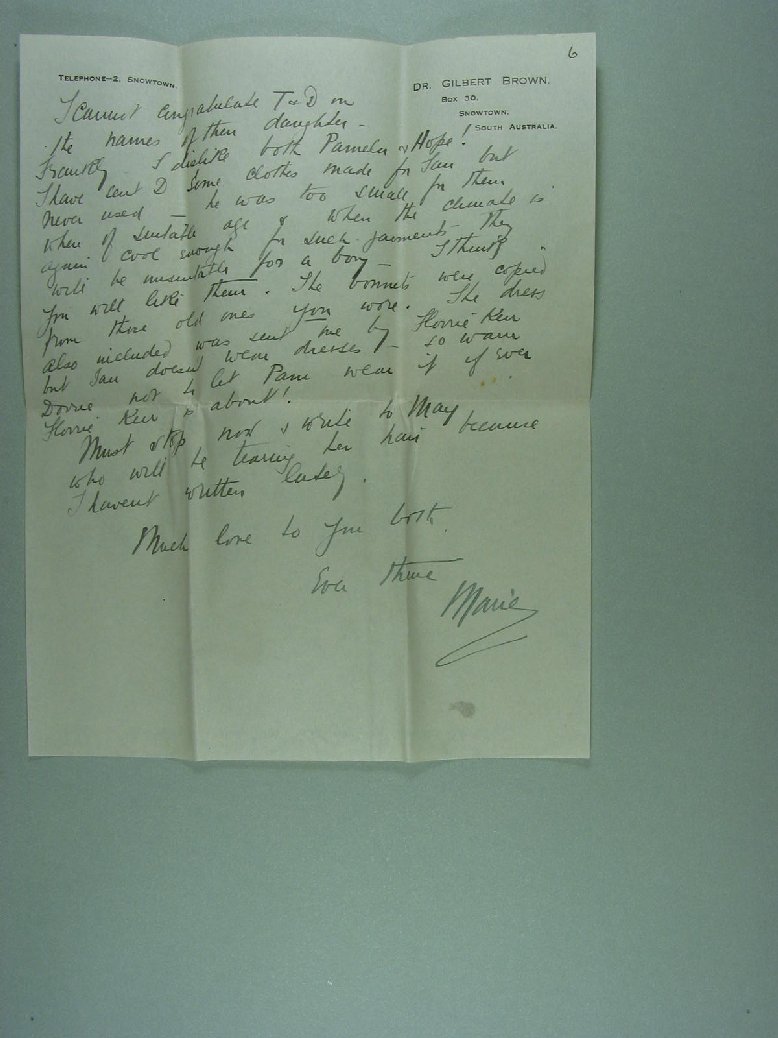 6
TELEPHONE—2, SNOWTOWN.
DR. GILBERT BROWN.
BOX 30,
SNOWTOWN,
SOUTH AUSTRALIA.
I cannot congratulate T & D on
the names of their daughter –
Frankly I dislike both Pamela & Hope!
I have sent D some clothes made for Ian but
never used – he was too small for them
when of suitable age & when the climate is
again cool enough for such garments they
will be unsuitable for a boy – I think
you will like them. The bonnets were copied
from those old ones you wore. The dress
also included was sent me by Florrie Kerr
but Ian doesn't wear dresses – so warn
Dorrie not to let Pam wear it if ever
Florrie Kerr is about!
Must stop now & write to May
who will be tearing her hair because
I havent written lately.
Much love to you both.
Ever thine
Marie